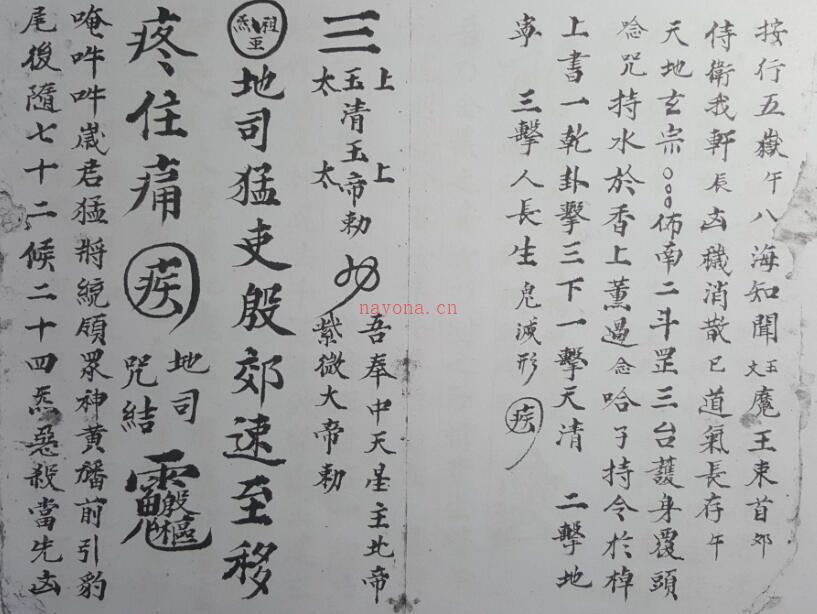 按行五嶽午八海知聞王文魔王束首卯
侍衛我軒辰凶穢消散巳道氣長存午
天地玄宗佈南二斗罡三台護身覆頭
念咒持水於香上薰過念哈了持令於棹
上書一乾卦擊三下一擊天清 二擊地
寧 三擊人長生鬼滅形 疾
三
上玉太
清玉帝勅
上太
吾奉中天星主北帝
紫微大帝勅
祖炁
地司猛吏殷郊速至移
疼住痛 疾
地司
咒結
殷樞
唵吽吽嵗君猛將統領眾神黃旛前引豹
尾後隨七十二候二十四炁惡殺當先凶
nayona.cn